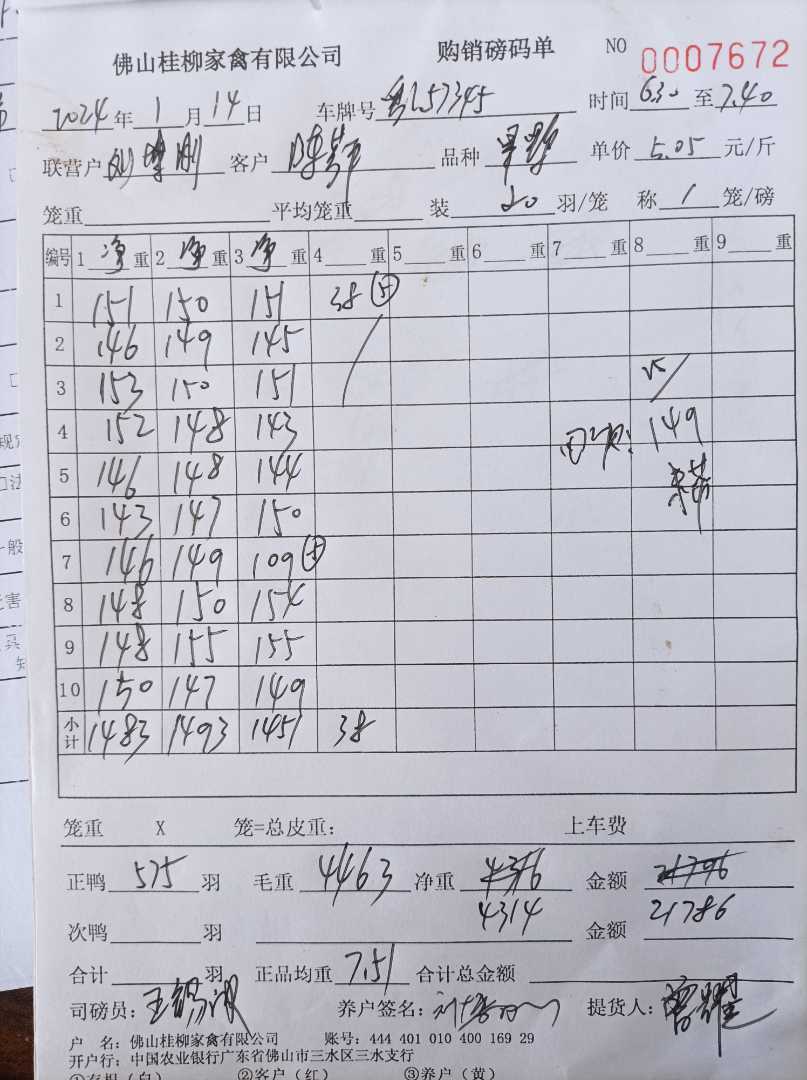 佛山桂柳家禽有限公司 购销磅码单 NO 0007672
2024年1月14日 车牌号粤L57345 时间6.30至7.40
联营户 客户 品种 单价5.05元/斤
笼重 平均笼重 装20羽/笼 称1笼/磅
编号 1净重 2净重 3净重 4重 5重 6重 7重 8重 9重
1 151 150 151 38⑤
2 146 149 145
3 153 150 151
4 152 148 143 149
5 146 148 144
6 143 147 150
7 146 149 109
8 148 150 154
9 148 155 155
10 150 147 149
小计 1483 1493 1451 38
笼重 X 笼=总皮重: 上车费
正鸭575羽 毛重4463 净重4316 金额21796
次鸭羽 4314 金额21786
合计羽 正品均重7.51 合计总金额
司磅员:王锡 养户签名: 提货人:
户 名: 佛山桂柳家禽有限公司 账号: 444 401 010 400 169 29
开户行: 中国农业银行广东省佛山市三水区三水支行
①存根(白) ②客户(红) ③养户(黄)